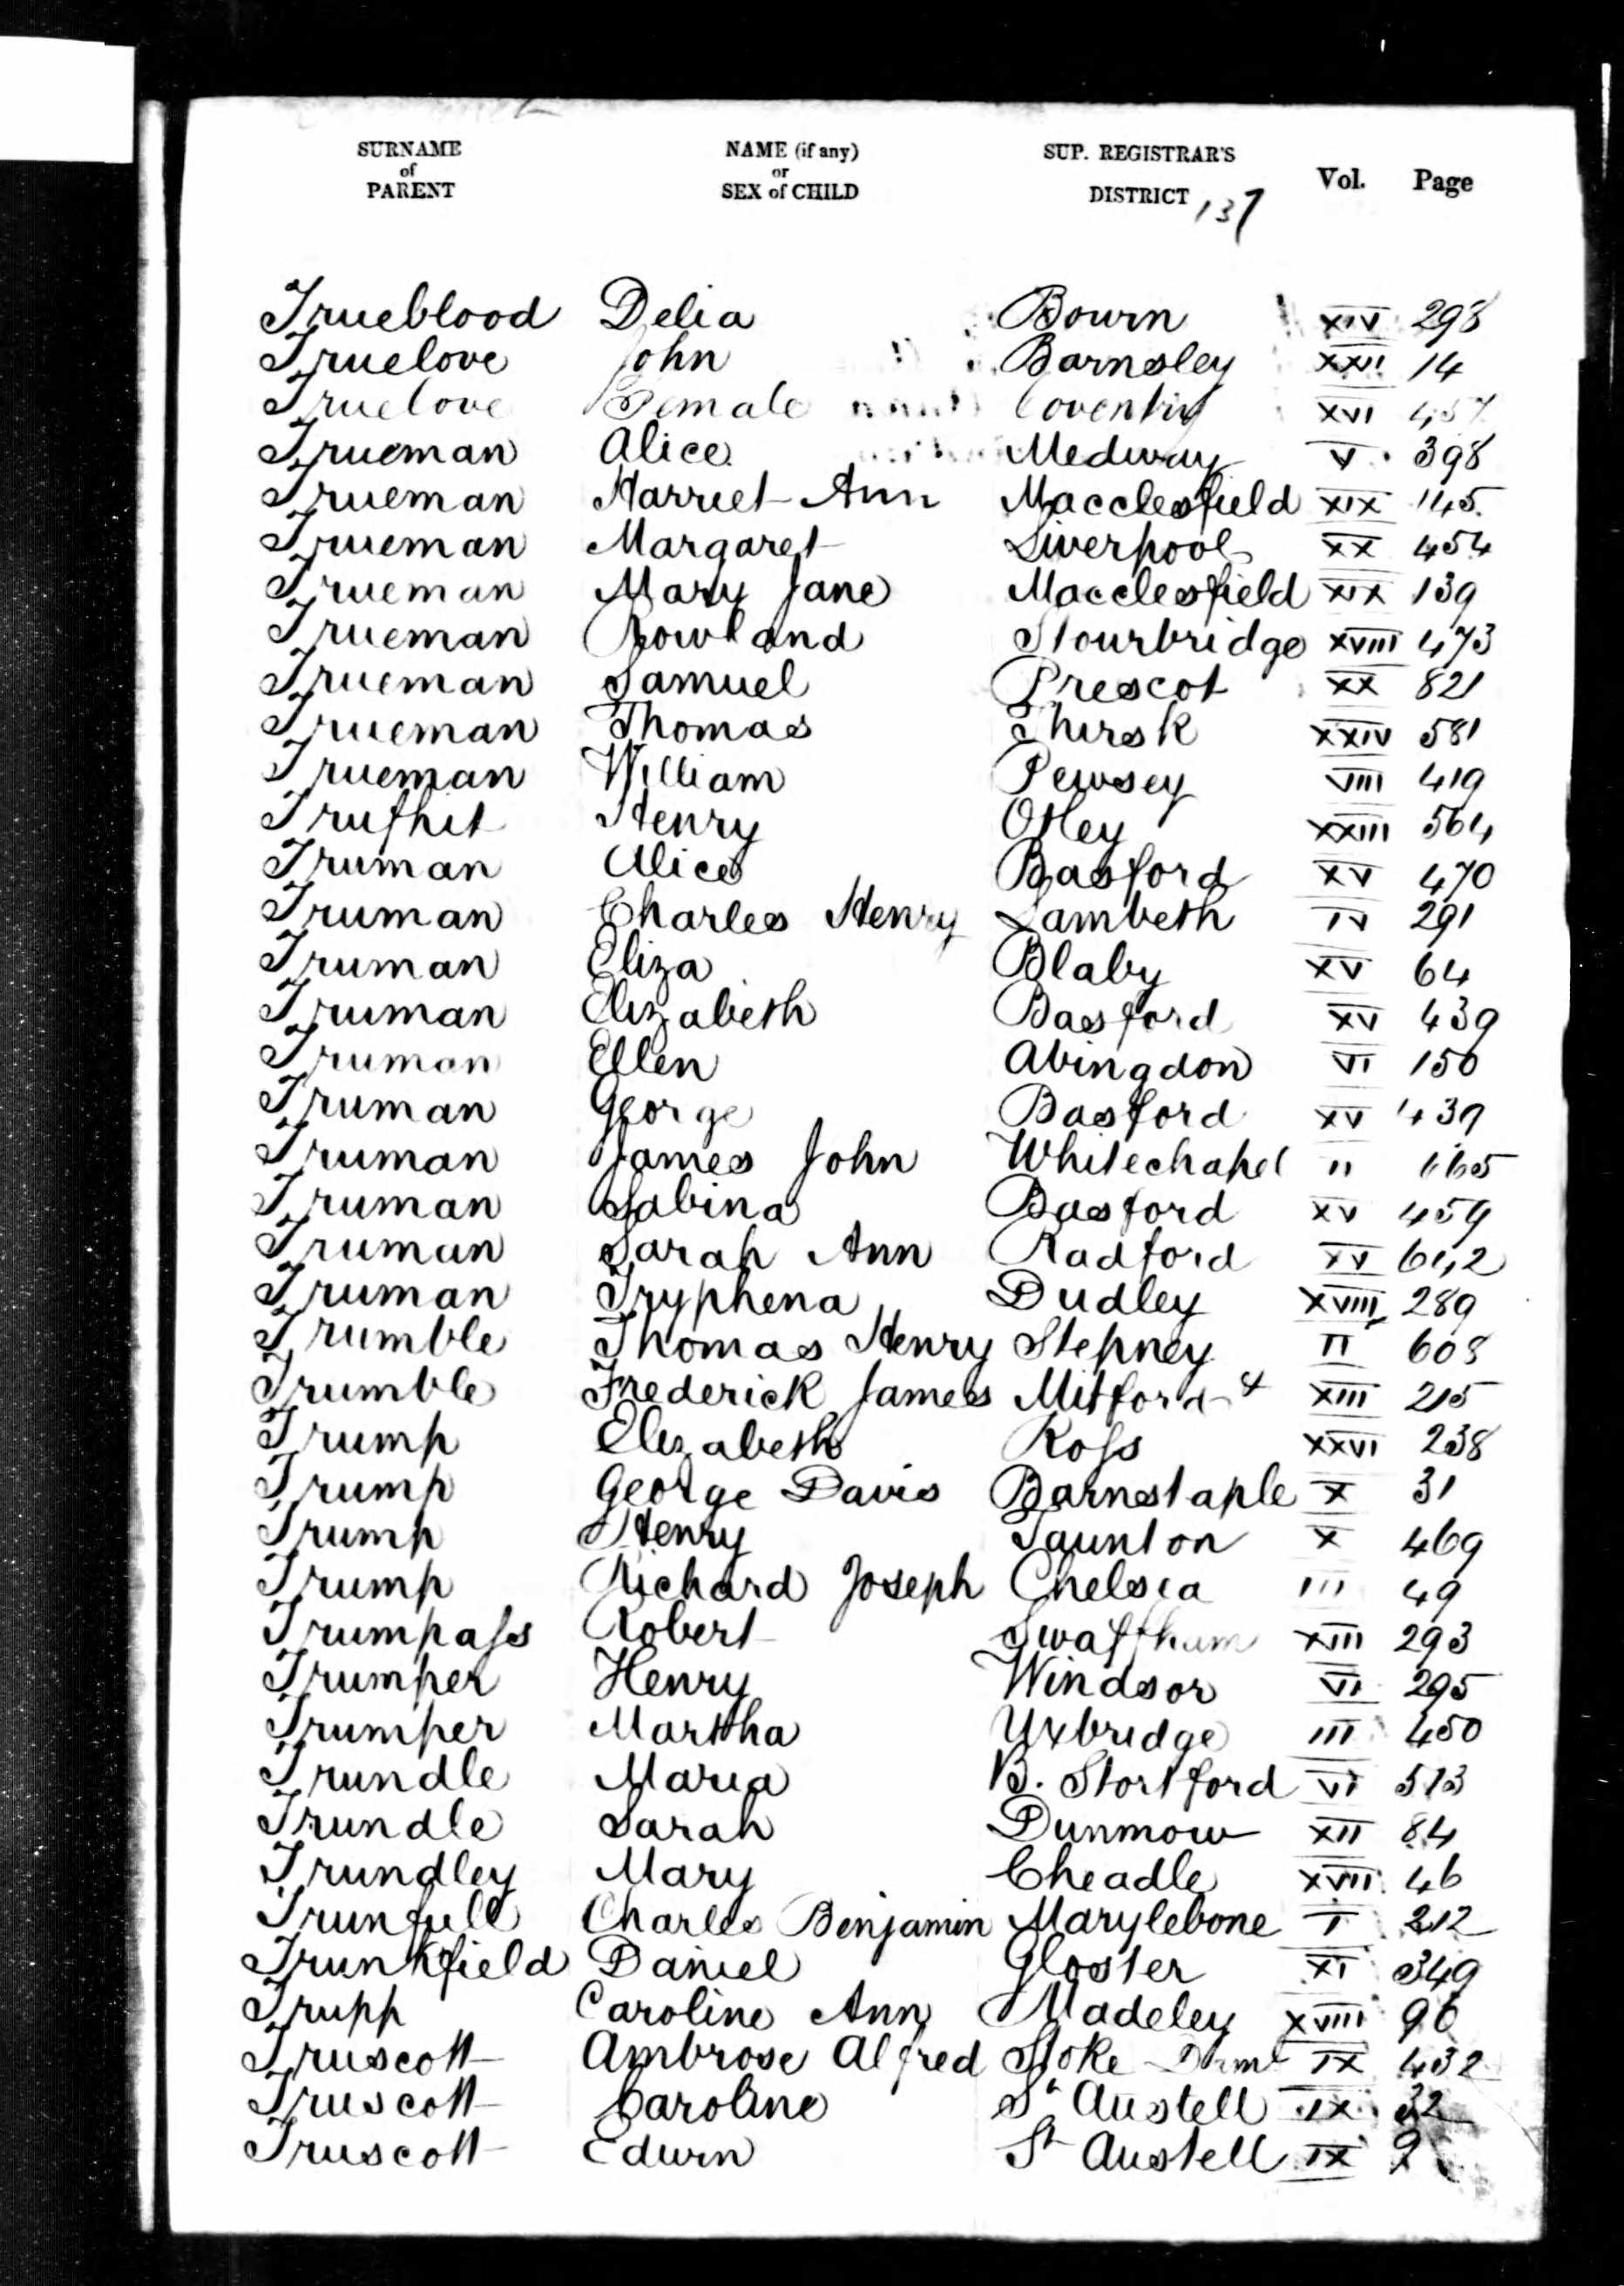 SURNAME of PARENT NAME (if any) or SEX of CHILD SUP. REGISTRAR'S DISTRICT Vol. Page
137
Trueblood Delia Bourn XIV 298
Truelove John Barnsley XXII 14
Truelove Female Coventry XVI 457
Trueman Alice Medway V 398
Trueman Harriet Ann Macclesfield XIX 145
Trueman Margaret Liverpool XX 454
Trueman Mary Jane Macclesfield XIX 139
Trueman Rowland Stourbridge XVIII 473
Trueman Samuel Prescot XX 821
Trueman Thomas Thirsk XXIV 581
Trueman William Pewsey VIII 419
Trufhit Henry Otley XXIII 564
Truman Alice Basford XV 470
Truman Charles Henry Lambeth IV 291
Truman Eliza Blaby XV 64
Truman Elizabeth Basford XV 439
Truman Ellen Abingdon VI 150
Truman George Basford XV 439
Truman James John Whitechapel II
Truman Sabina Basford XV 459
Truman Sarah Ann Radford XV 642
Truman Tryphena Dudley XVIII 289
Trumble Thomas Henry Stepney II 608
Trumble Frederick James Mitford & XIII 215
Trump Elizabeth Ross XXVI 238
Trump George Davis Barnstaple X 31
Trump Henry Taunton X 469
Trump Richard Joseph Chelsea III 49
Trumpass Robert Swaffham XIII 293
Trumper Henry Windsor VI 295
Trumper Martha Uxbridge III 450
Trundle Maria B. Stortford VI 513
Trundle Sarah Dunmow XII 84
Trundley Mary Cheadle XVII 46
Trunfull Charles Benjamin Marylebone I 212
Trunkfield Daniel Gloster XI 349
Trupp Caroline Ann Madeley XVIII 96
Truscott Ambrose Alfred Stoke IX 432
Truscott Caroline St Austell IX 32
Truscott Edwin St Austell IX